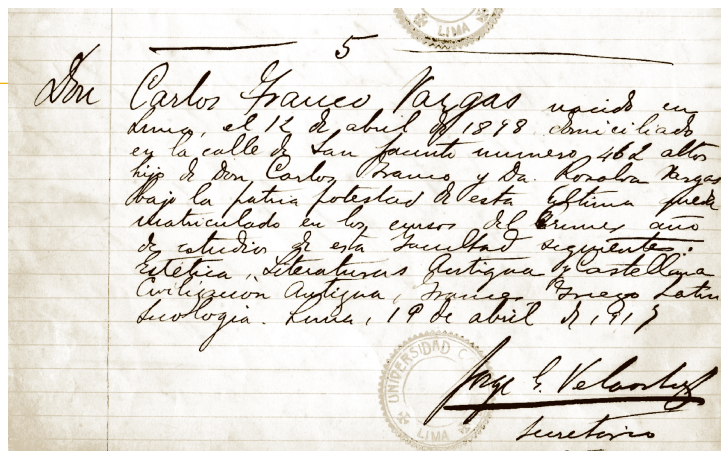 LIMA
5
Don Carlos Franco Vargas nacido en
Lima, el 12 de abril de 1898 domiciliado
en la calle de San Jacinto numero 462 altos
hijo de Don Carlos Franco y Da. Rosalva Vargas
bajo la patria potestad de esta última queda
matriculado en los cursos del primer año
de estudios de esta Facultad siguientes:
Estética, Literaturas Antigua y Castellana
Civilización Antigua, Frances, Griego Latin
Lima, 19 de abril de 191
UNIVERSIDAD C
LIMA
Jorge G.
Secretario